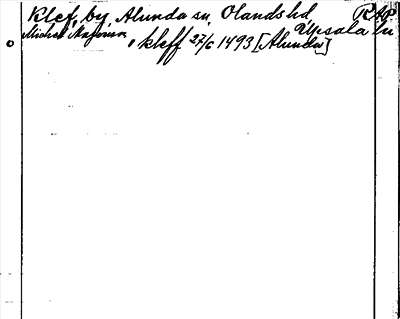 Klef, by, Alunda sn, Olands hd, RAp
Upsala län
Michel Matsson, kleff 27/6 1493 [Alunda]